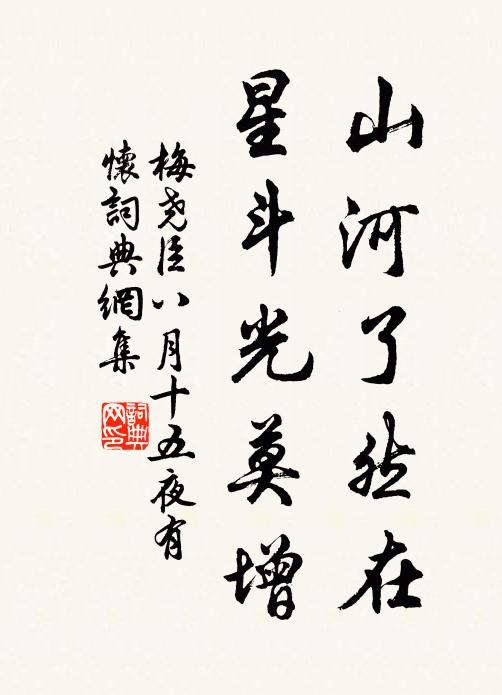 山河了然在
星斗光莫增
梅尧臣八月十五夜有
懷詞典網集
詞典网印